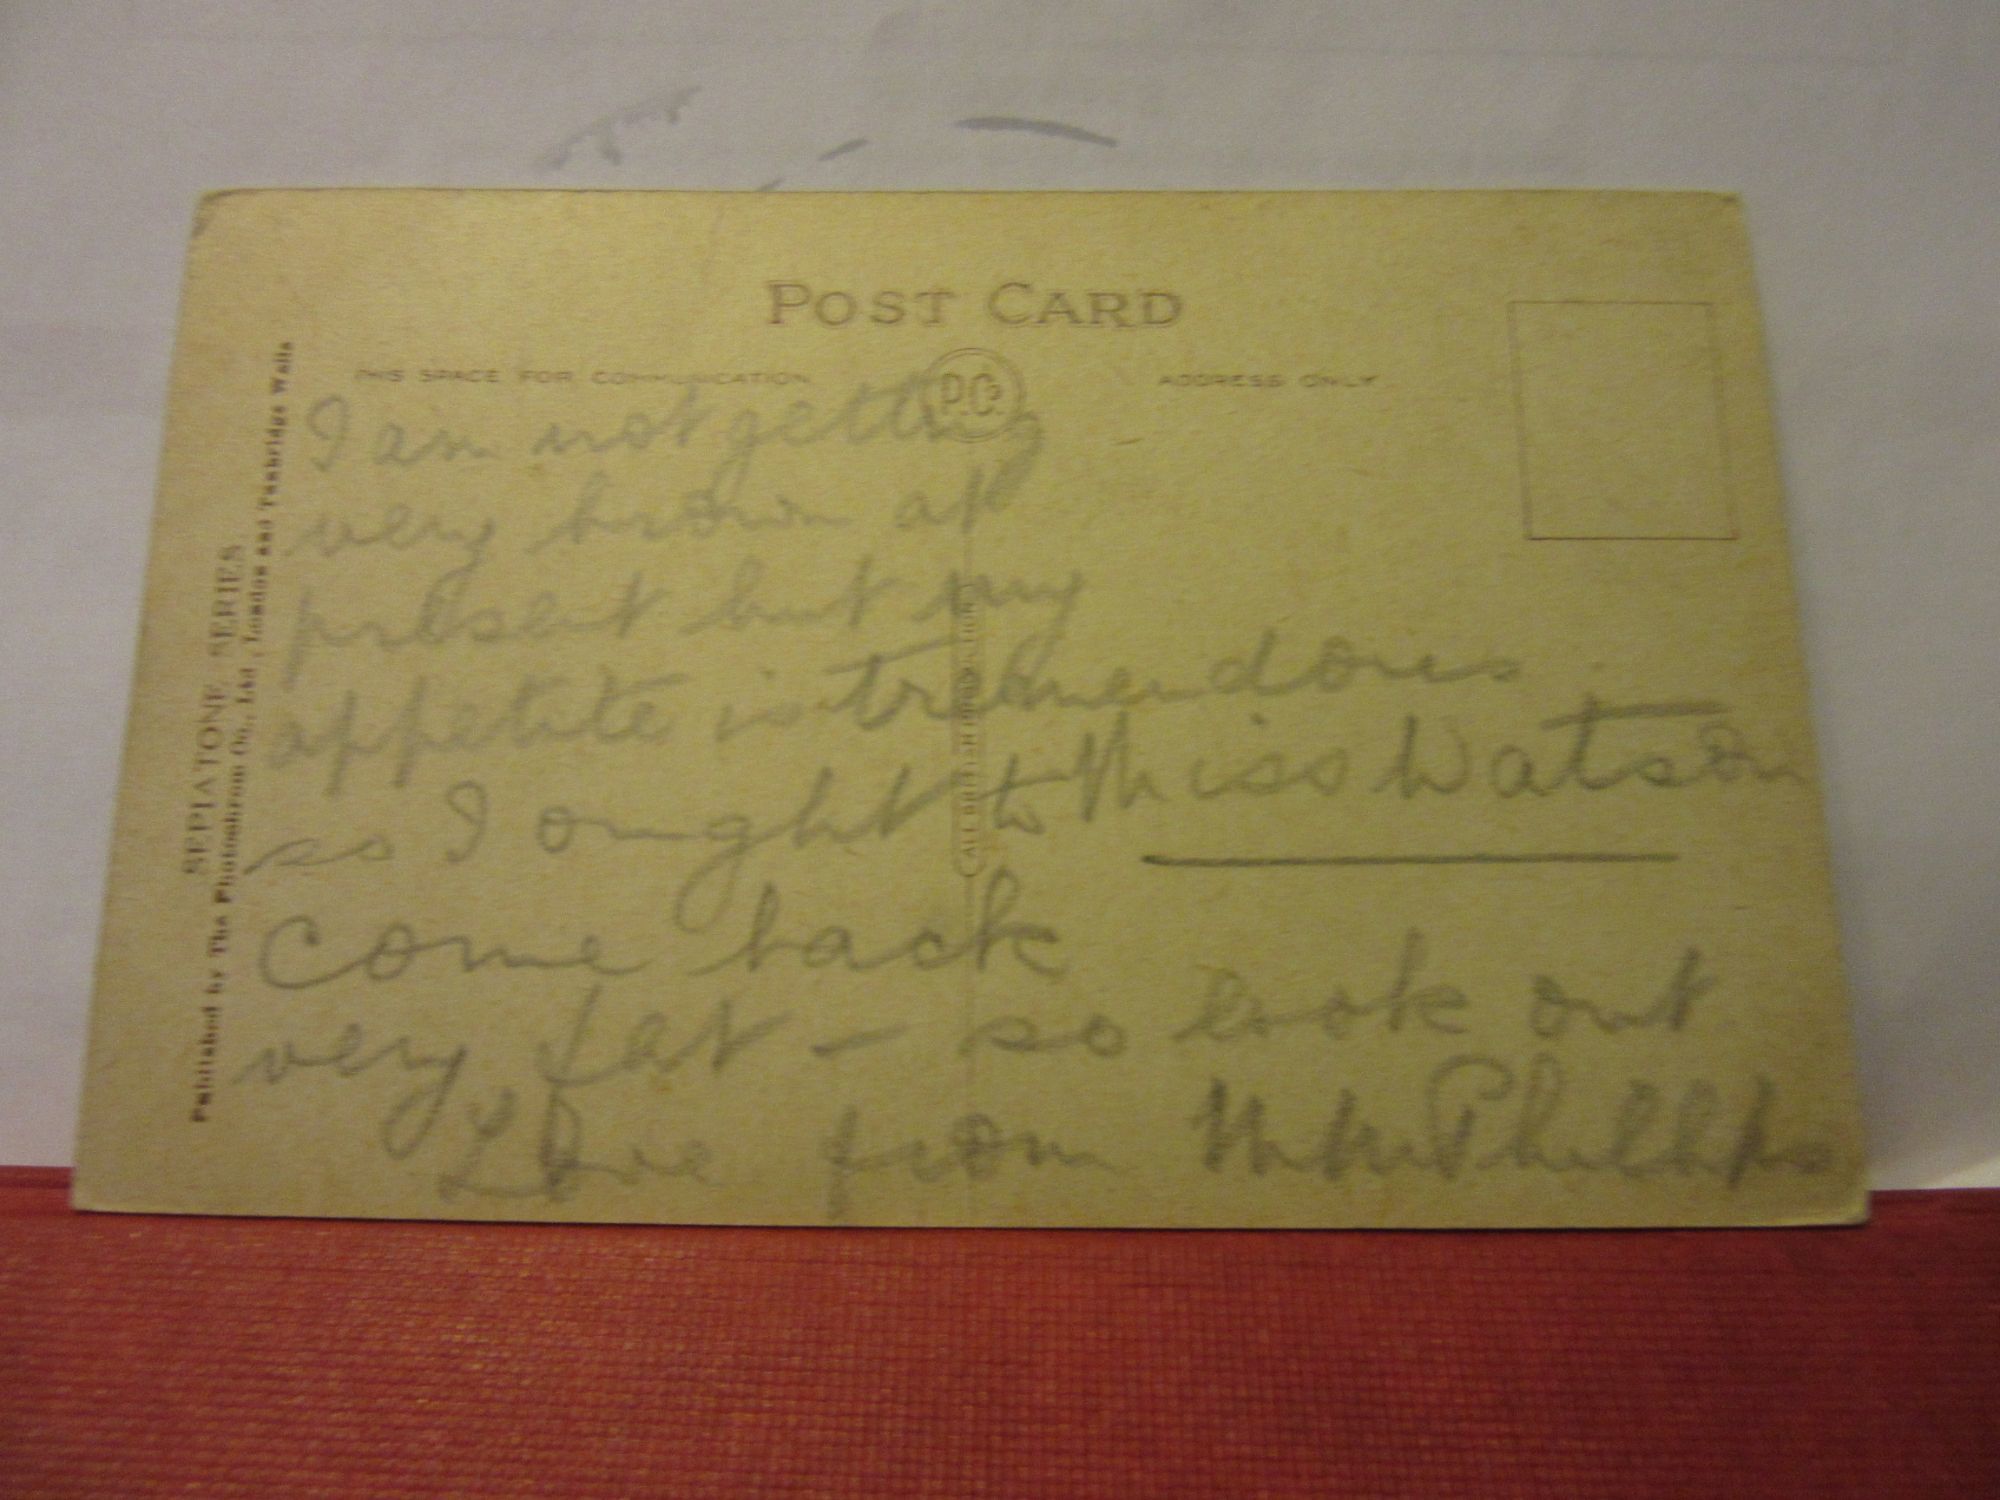 POST CARD
THIS SPACE FOR COMMUNICATION
P.C.
ADDRESS ONLY
I am not getting
very brown at
present but my
appetite is tremendous
so I ought to
come back
very fat – so look out
Love from Phillips
Miss Watson
ALL BRITISH PRODUCTION
SEPIATONE SERIES
Published by The Photochrom Co., Ltd., London and Tunbridge Wells